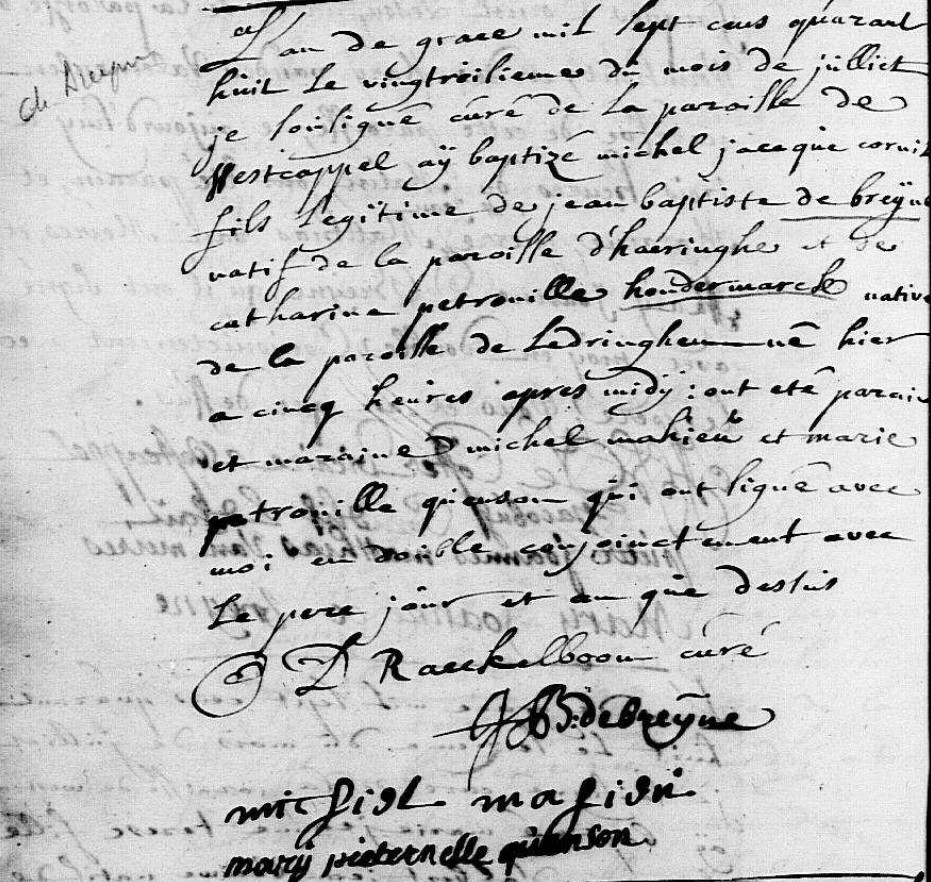 de Breyne
L'an de grace mil sept cens quarant
huit Le vingtroisieme du mois de julliet
je sousigné curé de La paroisse de
Westcappel aÿ baptizé michel jacque cornil
fils Legitime de jean baptiste de breÿne
natif de la paroisse d'haeringhe et de
catharine petronille houdermarck native
de la paroisse de Ledringhem né hier
a cincq heures apres midy : ont eté parain
et maraine michel mahieu et marie
petronille quenson qui ont signé avec
moi en double conjoinctement avec
Le pere jour et an que dessus
D Raeckelboom curé
JB: de breÿne
michiel mahieu
marij pieternelle quenson